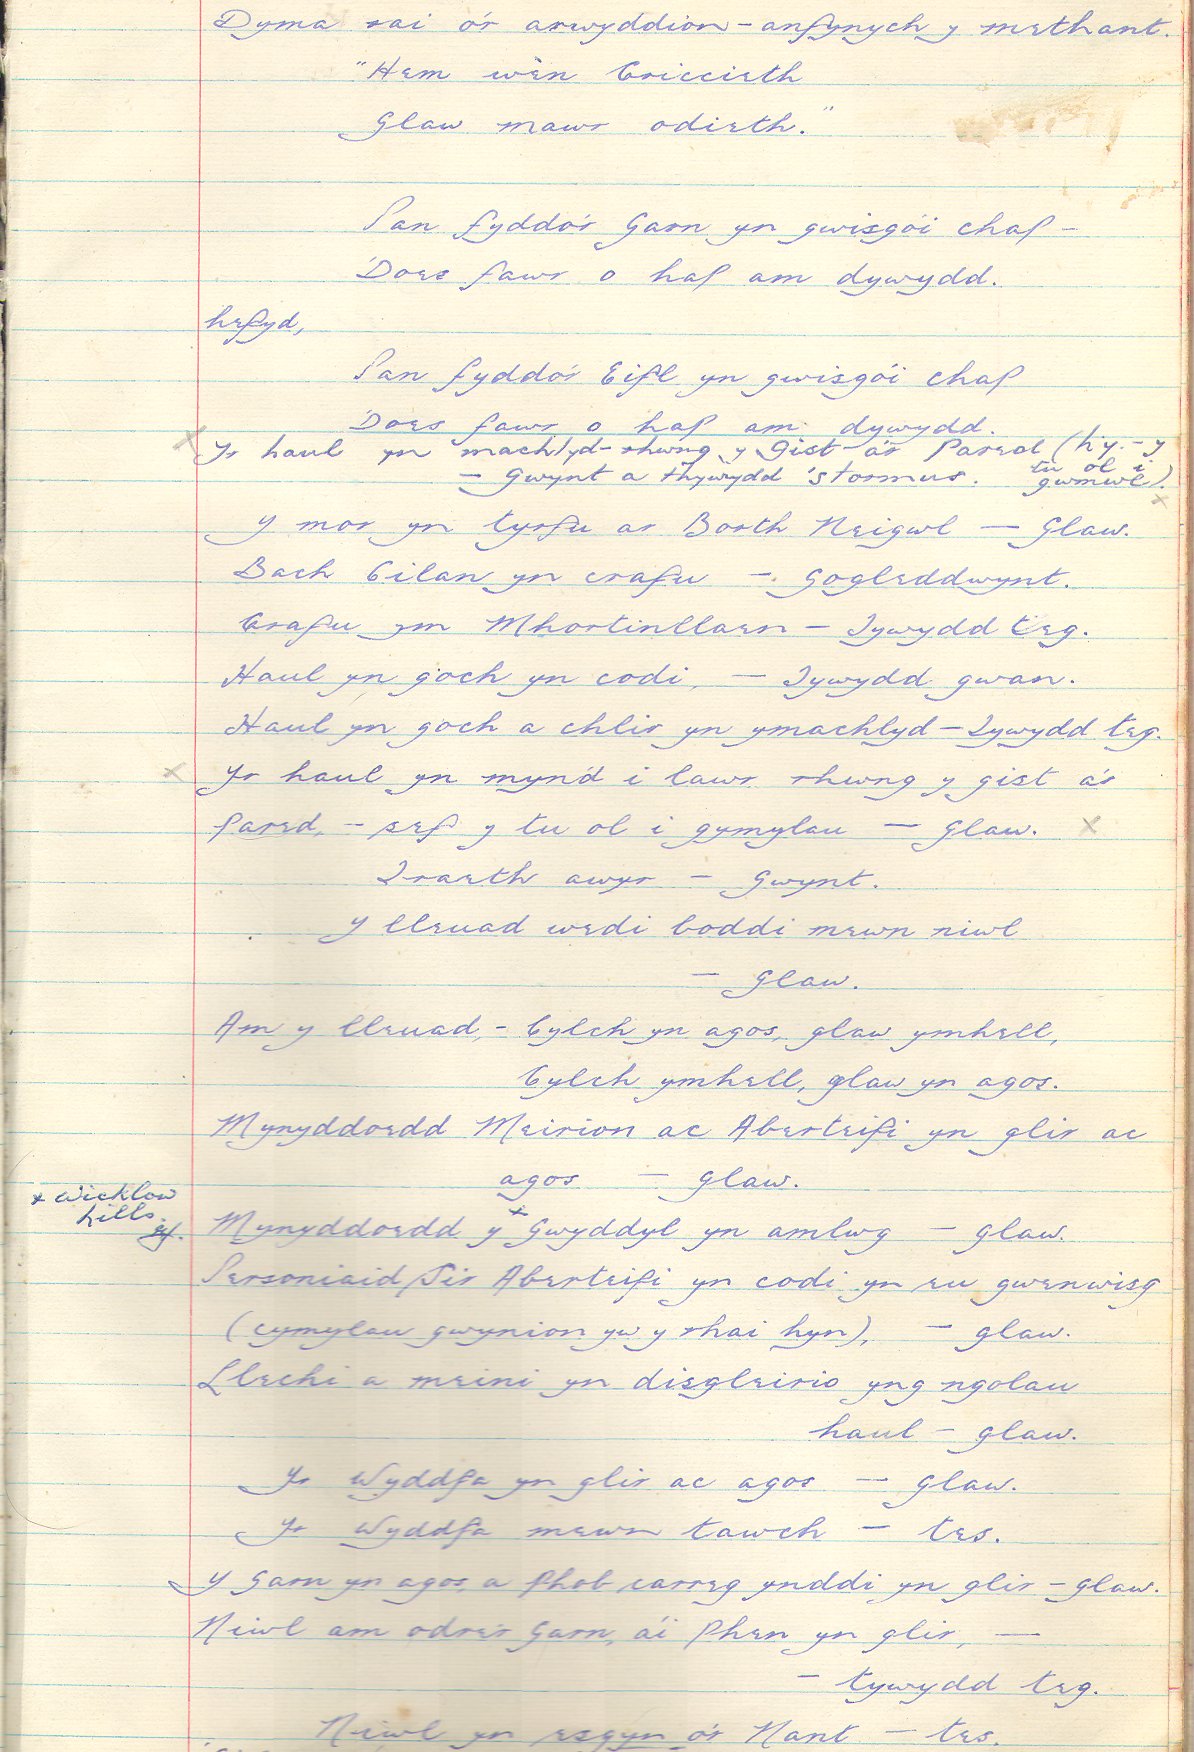 Dyma rai o'r arwyddion – anfynych y methant.
"Hem wèn Criccieth
Glaw mawr odieth."
Pan fyddo'r Garn yn gwisgo'i chap –
'Does fawr o hap am dywydd.
hefyd,
Pan fyddo'r Eifl yn gwisgo'i chap
'Does fawr o hap am dywydd.
Yr haul yn machlyd – rhwng y Gist a'r Pared (h.y. – y
tu ol i
– Gwynt a thywydd 'stormus. gwmwl).
Y mor yn tyrfu ar Borth Neigwl — Glaw.
Bach Cilan yn crafu – Gogleddwynt.
Crafu ym Mhortinllaen – Tywydd teg.
Haul yn goch yn codi, — Tywydd gwan.
Haul yn goch a chlir yn ymachlyd – Tywydd teg.
Yr haul yn myn'd i lawr rhwng y gist a'r
pared, – sef y tu ol i gymylau — Glaw.
Traeth awyr – Gwynt.
Y lleuad wedi boddi mewn niwl
– Glaw.
Am y lleuad, – Cylch yn agos, glaw ymhell,
Cylch ymhell, glaw yn agos.
Mynyddoedd Meirion ac Aberteifi yn glir ac
agos — Glaw.
x Wicklow
hills.
Mynyddoedd y x Gwyddyl yn amlwg — glaw.
Personiaid Sir Aberteifi yn codi yn eu gwenwisg
(cymylau gwynion yw y rhai hyn), – glaw.
Llechi a meini yn disgleirio yng ngolau
haul – glaw.
Yr Wyddfa yn glir ac agos — Glaw.
Yr Wyddfa mewn tawch – tes.
Y Garn yn agos, a phob carreg ynddi yn glir – Glaw.
Niwl am odre'r Garn, a'i phen yn glir, —
– tywydd teg.
Niwl yn esgyn o'r Nant — tes.